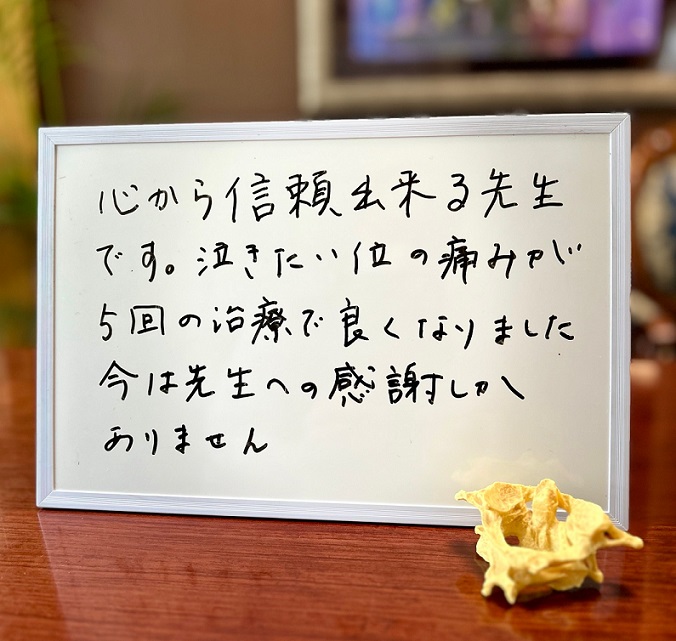 心から信頼出来る先生
です。泣きたい位の痛みが
5回の治療で良くなりました
今は先生への感謝しか
ありません